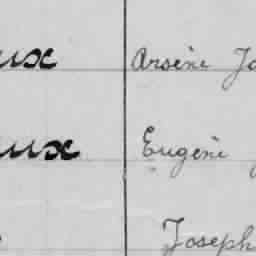 ux Arsène Jo
ux Eugène J
Joseph